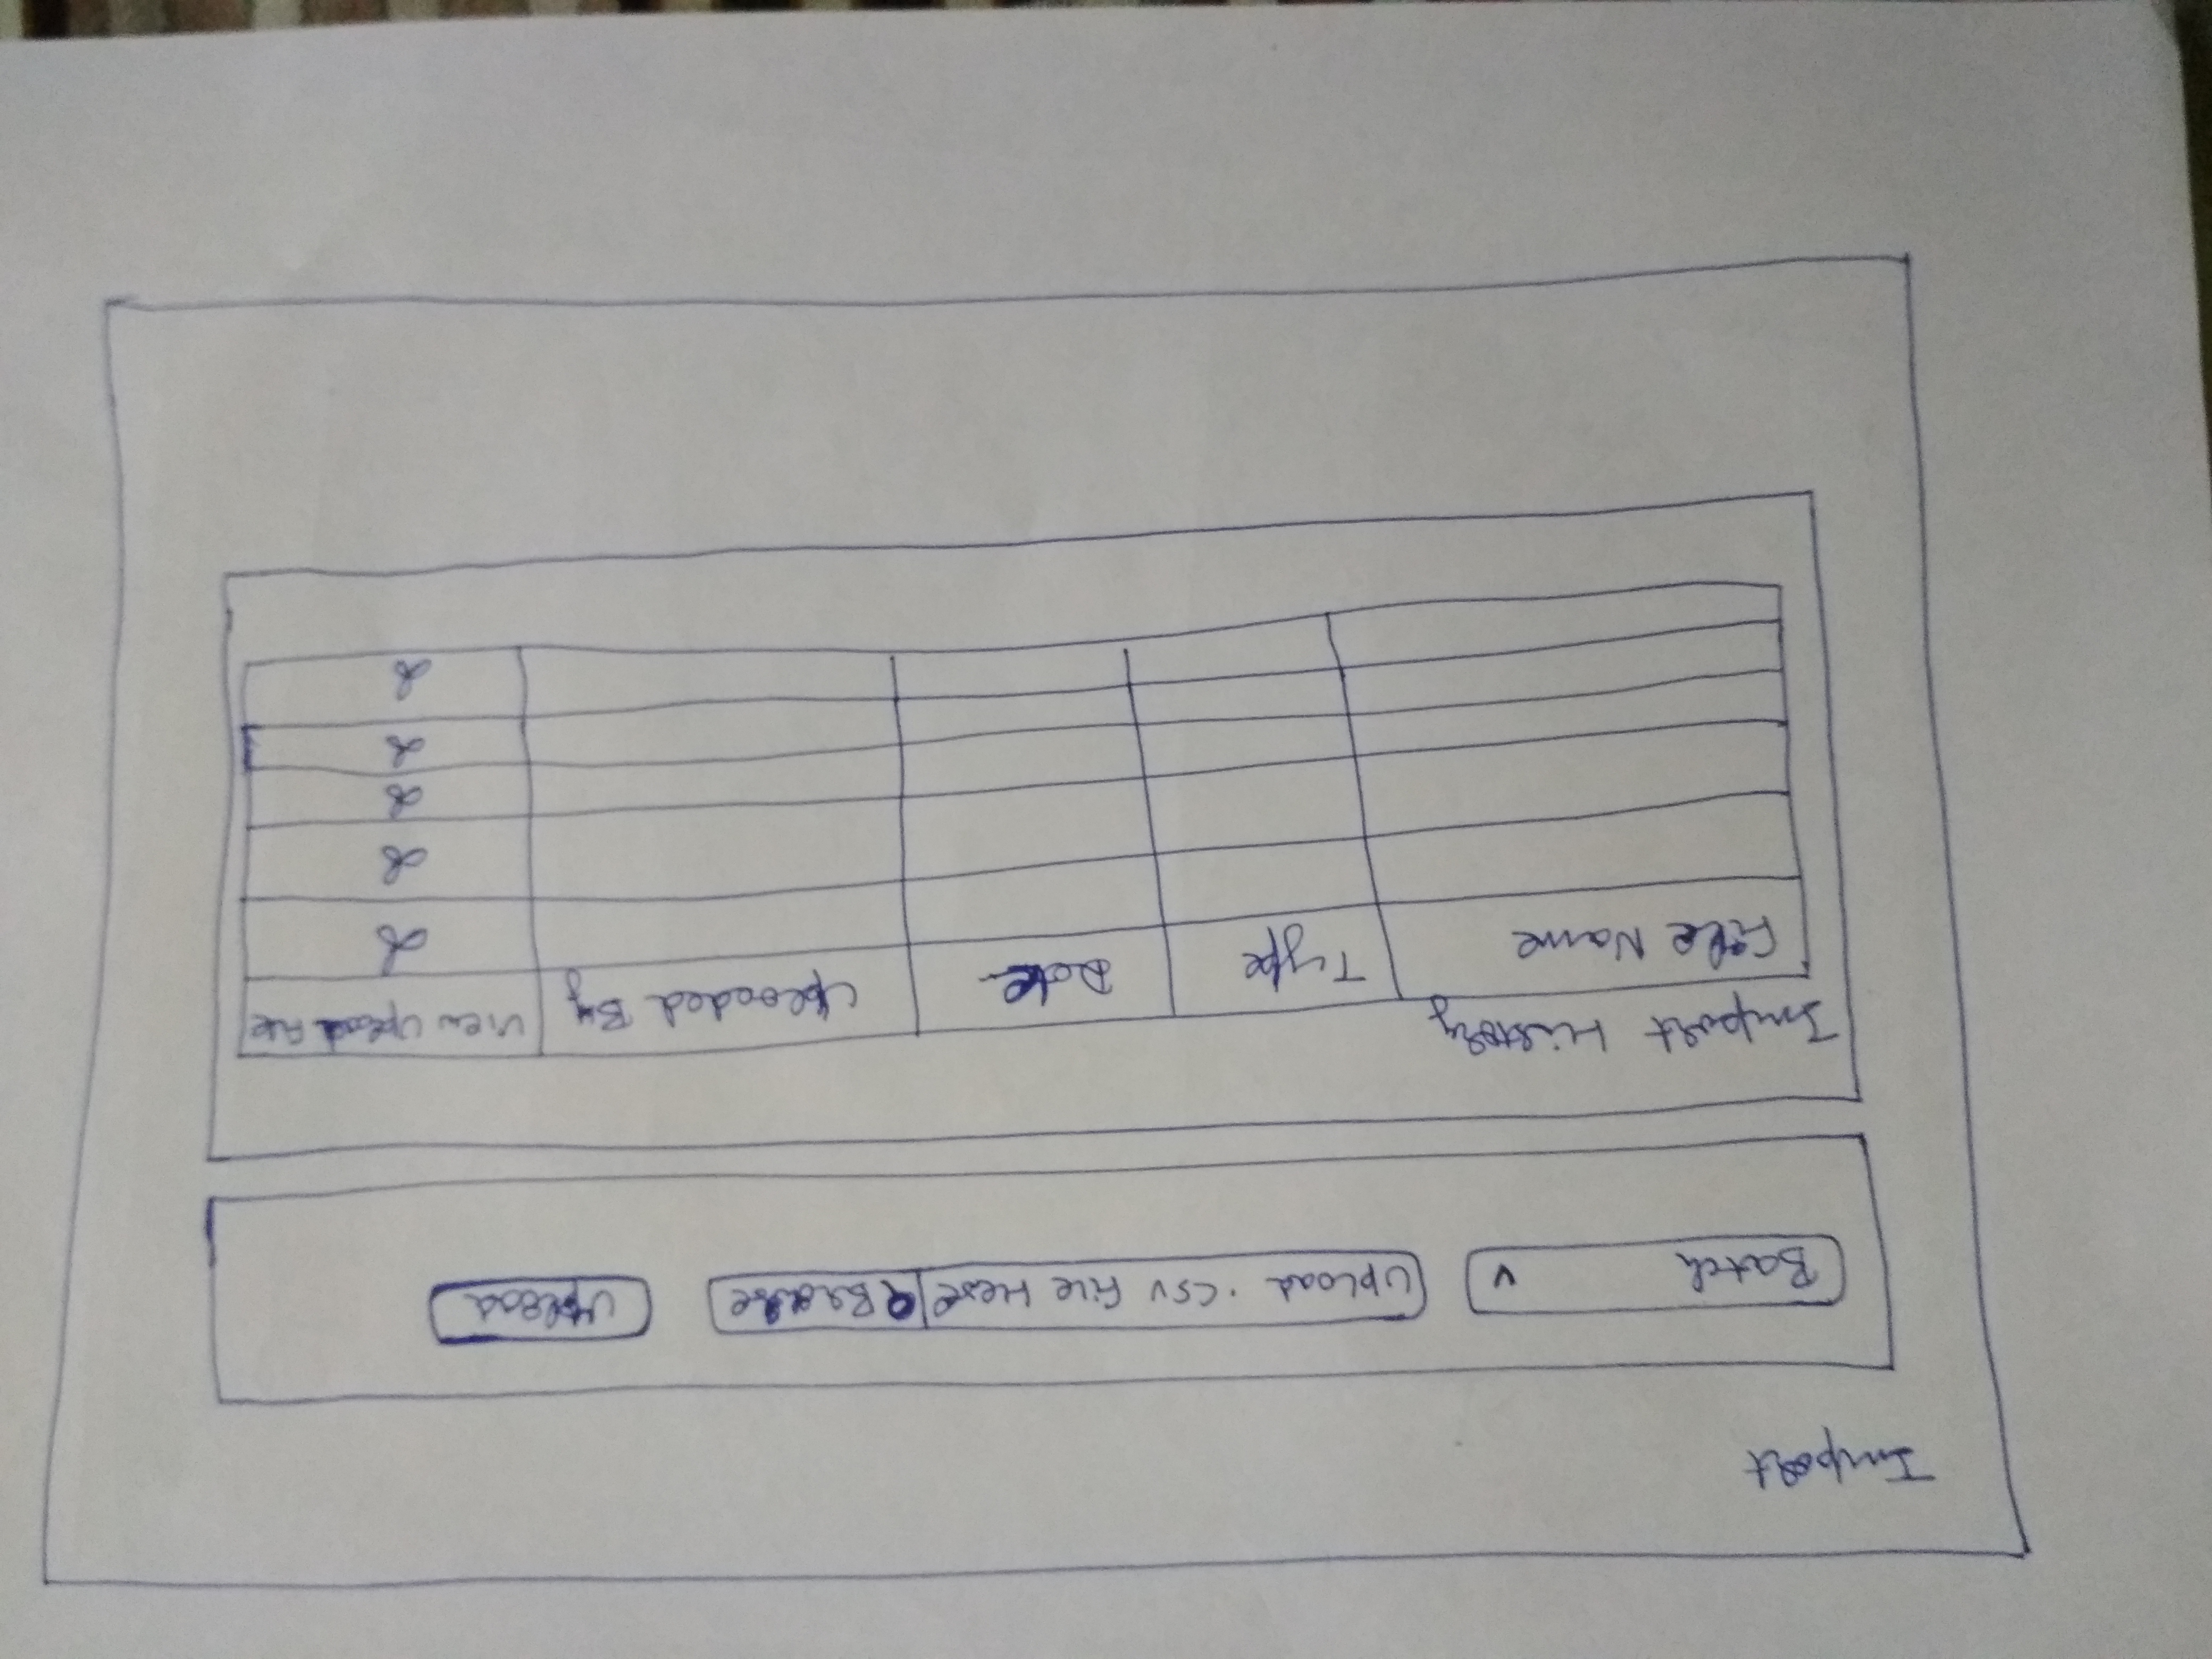 Import
Batch
Upload .CSV File Here
Browse
Upload
Import History
File Name
Type
Date
Uploaded By
View Upload File